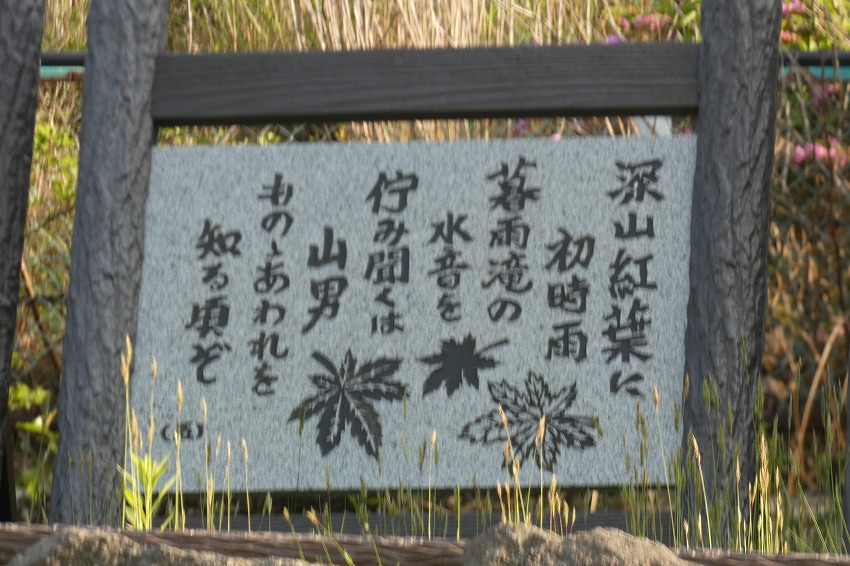 深山紅葉に
初時雨
暮雨滝の
水音を
佇み聞くは
山男
ものゝあわれを
知る頃ぞ
(五)